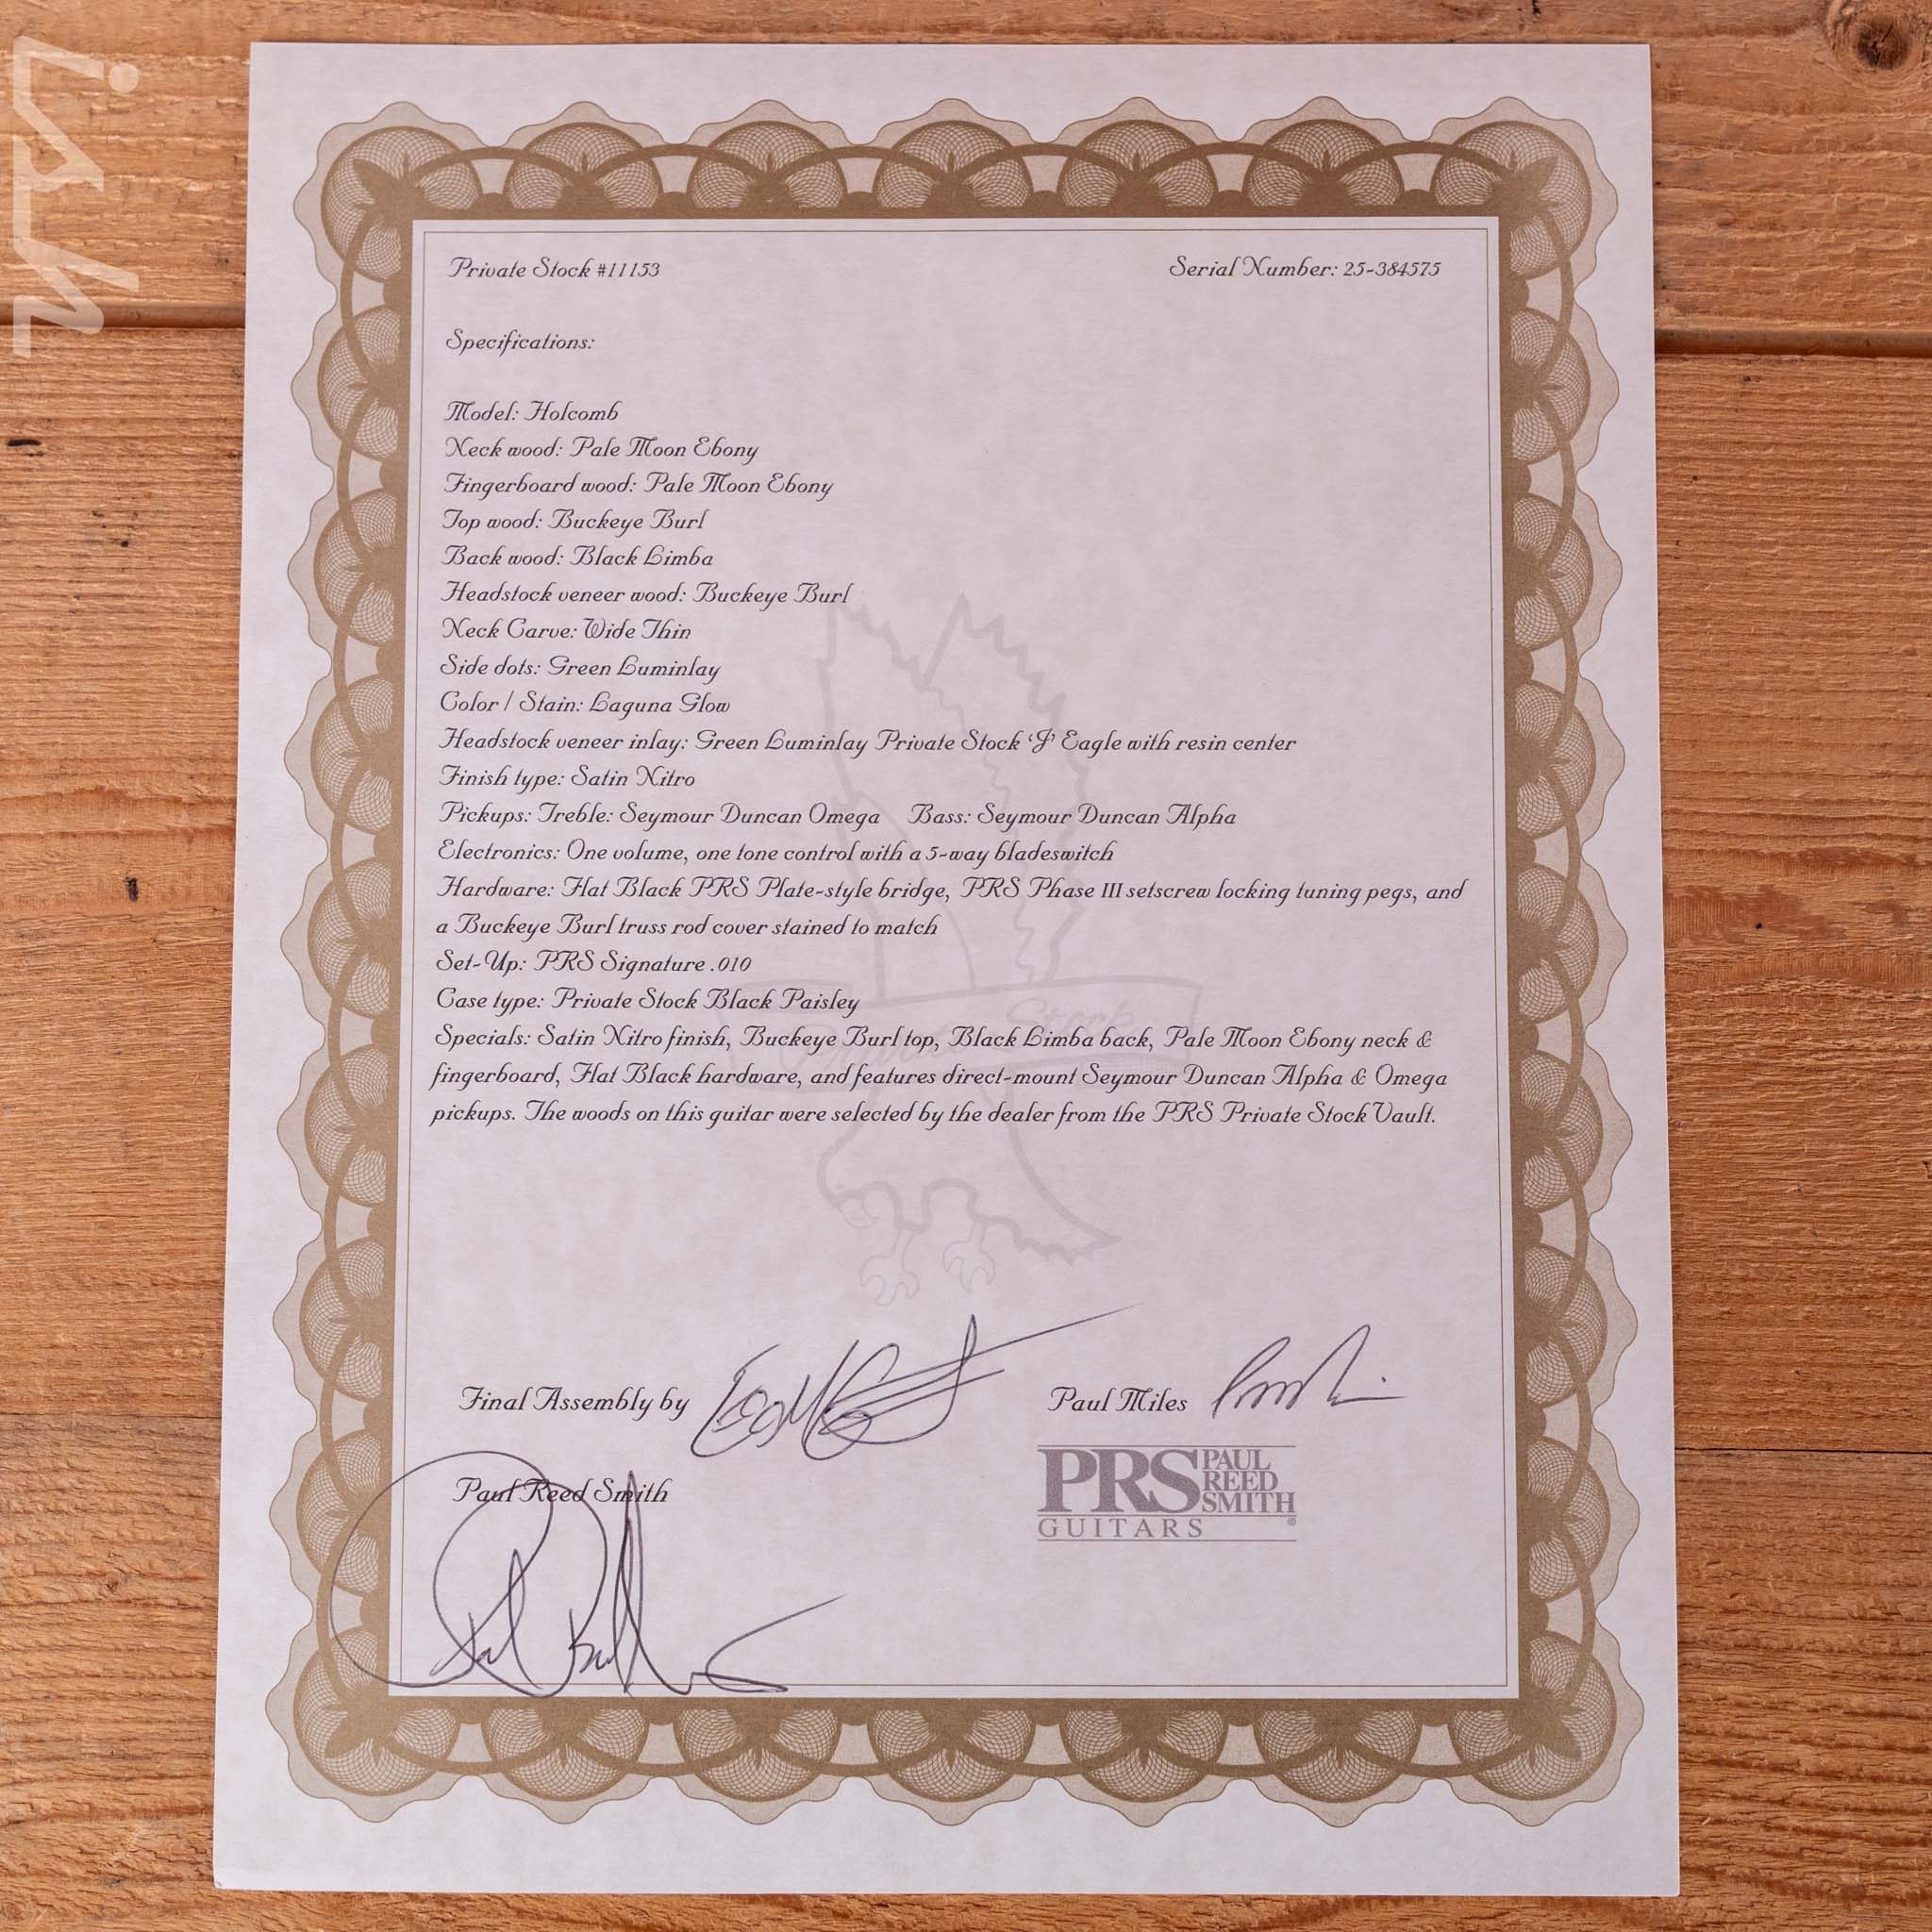 ish
Private Stock #11153
Serial Number: 25-384575
Specifications:
Model: Holcomb
Neck wood: Pale Moon Ebony
Fingerboard wood: Pale Moon Ebony
Top wood: Buckeye Burl
Back wood: Black Limba
Headstock veneer wood: Buckeye Burl
Neck Carve: Wide Thin
Side dots: Green Luminlay
Color / Stain: Laguna Glow
Headstock veneer inlay: Green Luminlay Private Stock 'J' Eagle with resin center
Finish type: Satin Nitro
Pickups: Treble: Seymour Duncan Omega Bass: Seymour Duncan Alpha
Electronics: One volume, one tone control with a 5-way bladeswitch
Hardware: Flat Black PRS Plate-style bridge, PRS Phase III setscrew locking tuning pegs, and
a Buckeye Burl truss rod cover stained to match
Set-Up: PRS Signature .010
Case type: Private Stock Black Paisley
Specials: Satin Nitro finish, Buckeye Burl top, Black Limba back, Pale Moon Ebony neck &
fingerboard, Flat Black hardware, and features direct-mount Seymour Duncan Alpha & Omega
pickups. The woods on this guitar were selected by the dealer from the PRS Private Stock Vault.
Private Stock
Final Assembly by
Paul Miles
Paul Reed Smith
PRS PAUL
REED
SMITH
GUITARS ®